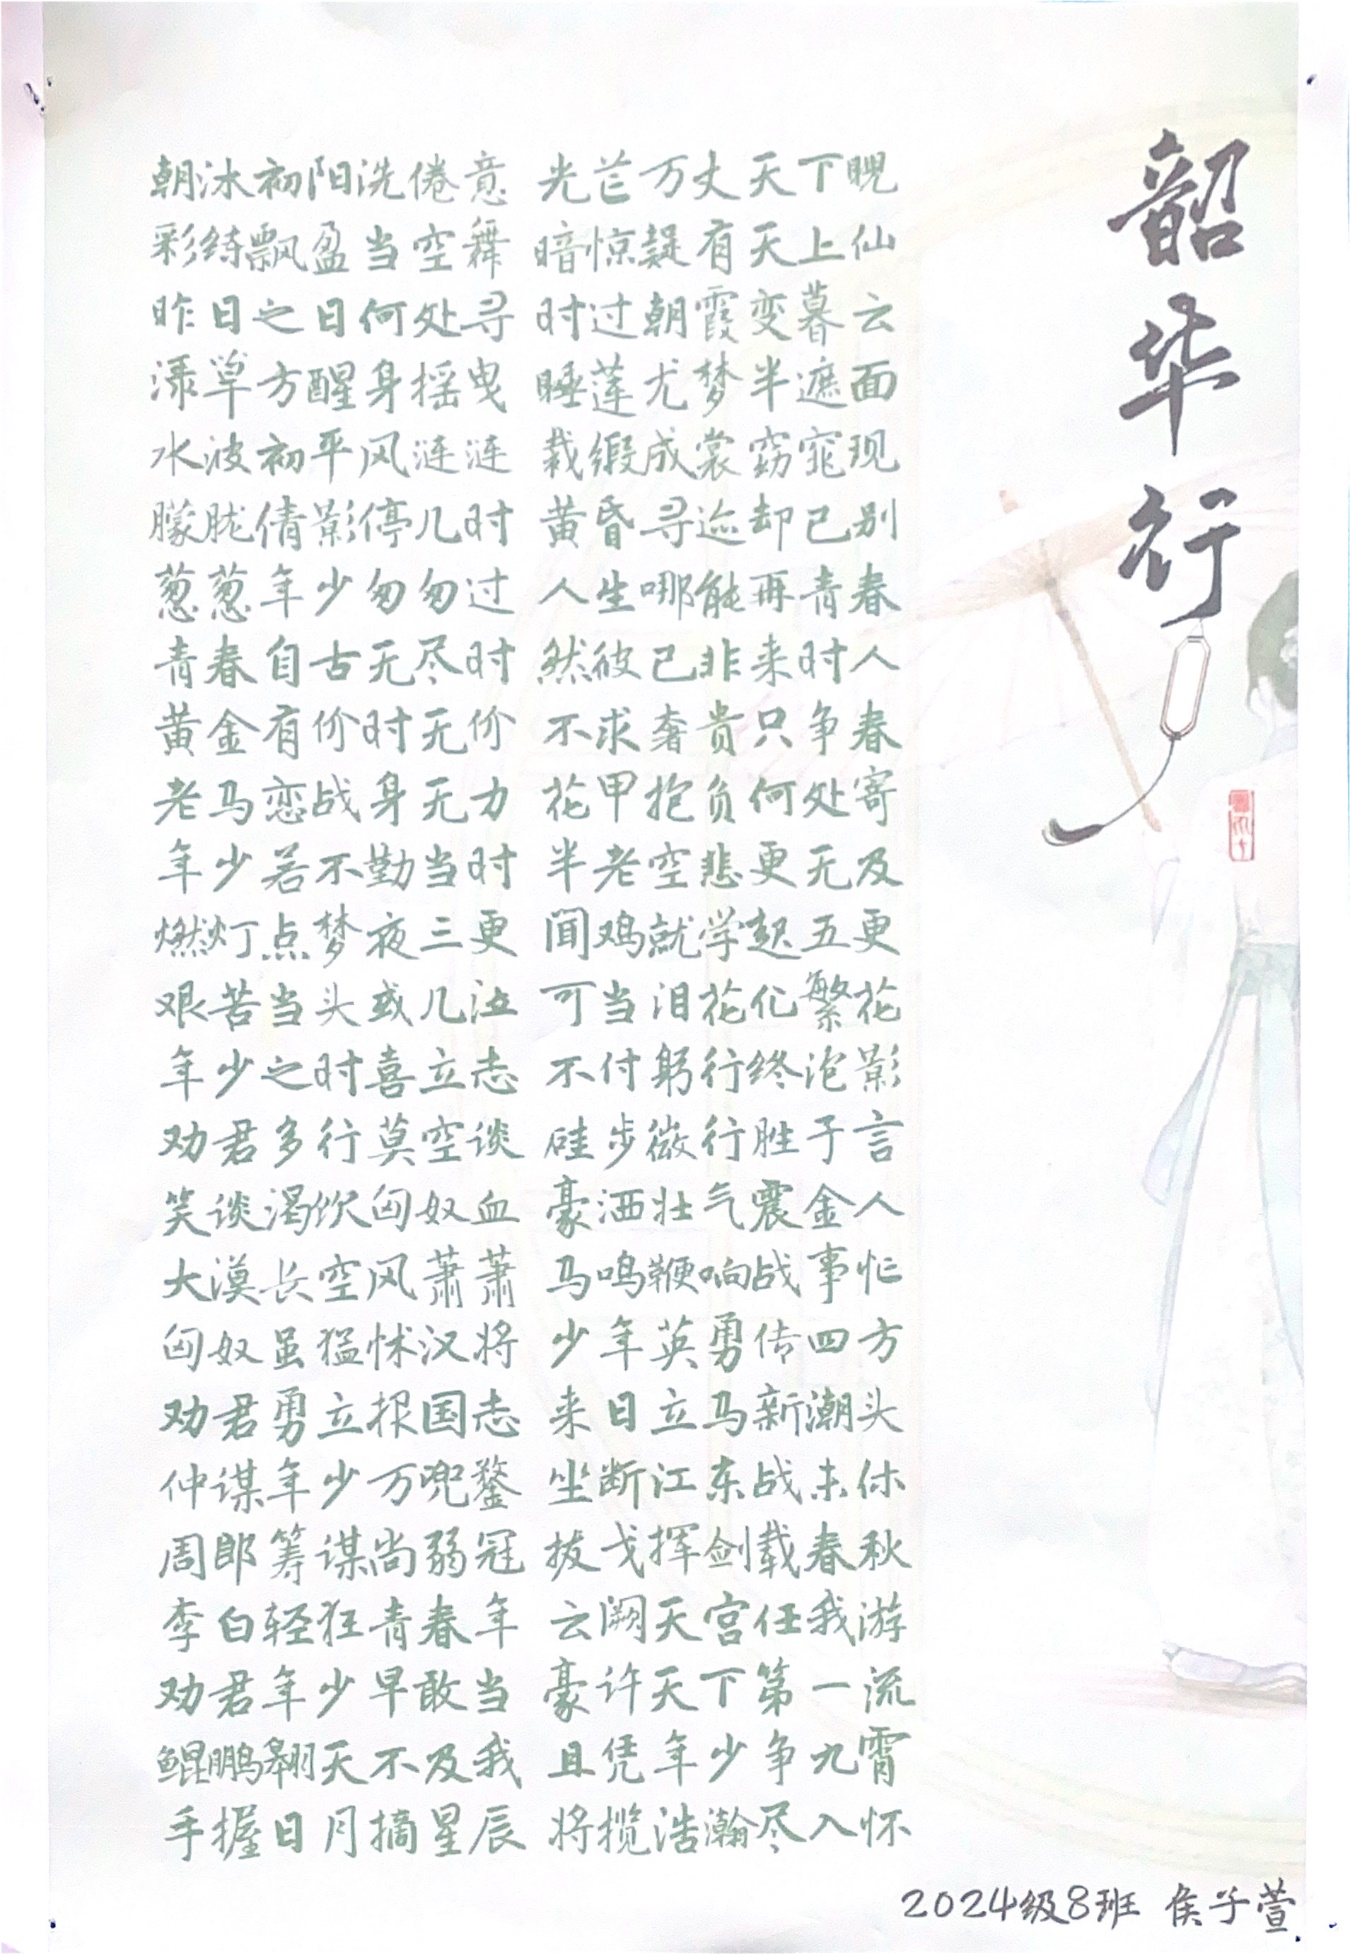 韶华行
朝沐初阳洗倦意 光芒万丈天下睨
彩绮飘盈当空舞 暗惊疑有天上仙
昨日之日何处寻 时过朝霞变暮云
渌草方醒身摇曳 睡莲尤梦半遮面
水波初平风涟涟 裁缎成裳窈窕现
朦胧倩影停几时 黄昏寻迹却已别
葱葱年少匆匆过 人生哪能再青春
青春自古无尽时 然彼已非来时人
黄金有价时无价 不求奢贵只争春
老马恋战身无力 花甲抱负何处寄
年少若不勤当时 半老空悲更无及
燃灯点梦夜三更 闻鸡就学起五更
艰苦当头或几泣 可当泪花化繁花
年少之时喜立志 不付躬行终泡影
劝君多行莫空谈 硅步微行胜于言
笑谈渴饮匈奴血 豪洒壮气震金人
大漠长空风萧萧 马鸣鞭响战事忙
匈奴虽猛怵汉将 少年英勇传四方
劝君勇立报国志 来日立马新潮头
仲谋年少万兜鍪 坐断江东战未休
周郎筹谋尚弱冠 拔戈挥剑载春秋
李白轻狂青春年 云阙天宫任我游
劝君年少早敢当 豪许天下第一流
鲲鹏翱天不及我 且凭年少争九霄
手握日月摘星辰 将揽浩瀚尽入怀
2024级8班 侯子萱